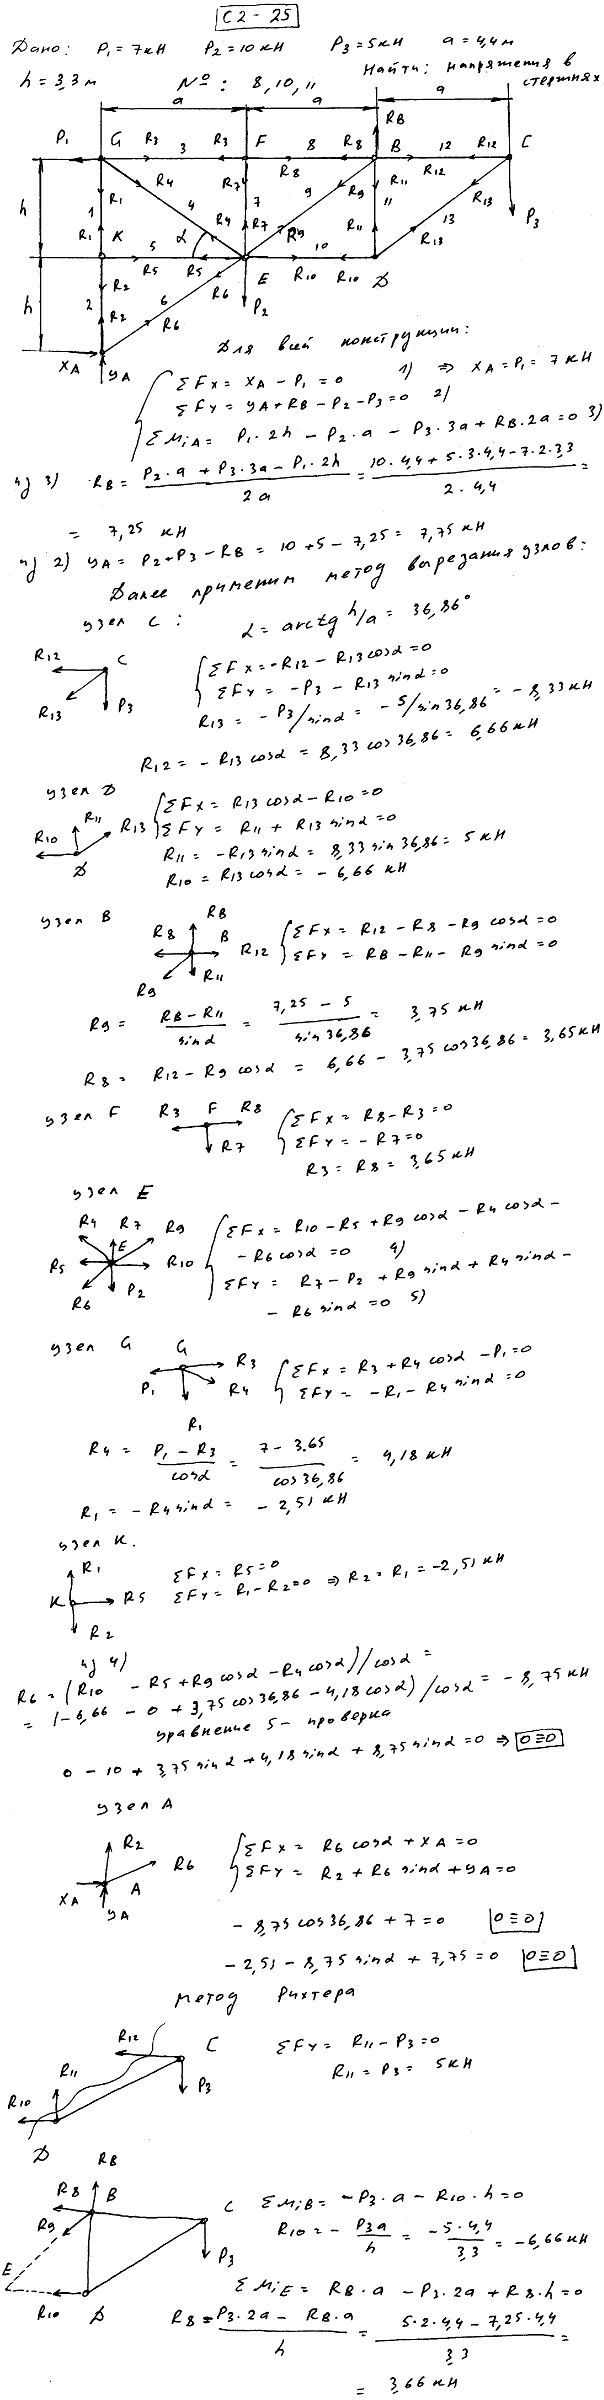 С2-25
Дано: P₁=7кН P₂=10кН P₃=5кН a=4,4м
h=3,3м №: 8, 10, 11 Найти: напряжения в стержнях
a a a
RB
P₁ G R₃ 3 R₃ F 8 R₈ R₈ B 12 R₁₂ C
R₁ R₄ 4 R₇ 7 9 R₉ R₁₁ 11 R₁₂ R₁₃ P₃
h 1 R₁ K 5 α R₄ R₇ R₉ 10 R₁₁ 13 R₁₃
R₅ R₅ E R₁₀ R₁₀ D
h 2 R₂ R₂ 6 R₆ R₆ P₂
XA YA
Для всей конструкции:
ΣFx = XA − P₁ = 0 1) ⇒ XA = P₁ = 7 кН
ΣFy = YA + RB − P₂ − P₃ = 0 2)
ΣMiA = P₁·2h − P₂·a − P₃·3a + RB·2a = 0 3)
из 3) RB = (P₂·a + P₃·3a − P₁·2h)/2a = (10·4,4 + 5·3·4,4 − 7·2·3,3)/(2·4,4) =
= 7,25 кН
из 2) YA = P₂ + P₃ − RB = 10 + 5 − 7,25 = 7,75 кН
Далее применим метод вырезания узлов:
узел C: α = arctg h/a = 36,86°
R₁₂ C R₁₃ P₃
ΣFx = −R₁₂ − R₁₃ cosα = 0
ΣFy = −P₃ − R₁₃ sinα = 0
R₁₃ = −P₃/sinα = −5/sin36,86 = −8,33 кН
R₁₂ = −R₁₃ cosα = 8,33 cos36,86 = 6,66 кН
узел D
R₁₀ R₁₁ R₁₃ D
ΣFx = R₁₃ cosα − R₁₀ = 0
ΣFy = R₁₁ + R₁₃ sinα = 0
R₁₁ = −R₁₃ sinα = 8,33 sin36,86 = 5 кН
R₁₀ = R₁₃ cosα = −6,66 кН
узел B
R₈ RB B R₁₂ R₉ R₁₁
ΣFx = R₁₂ − R₈ − R₉ cosα = 0
ΣFy = RB − R₁₁ − R₉ sinα = 0
R₉ = (RB − R₁₁)/sinα = (7,25 − 5)/sin36,86 = 3,75 кН
R₈ = R₁₂ − R₉ cosα = 6,66 − 3,75 cos36,86 = 3,65 кН
узел F R₃ F R₈ R₇
ΣFx = R₈ − R₃ = 0
ΣFy = −R₇ = 0
R₃ = R₈ = 3,65 кН
узел E
R₄ R₇ R₉ E R₅ R₁₀ R₆ P₂
ΣFx = R₁₀ − R₅ + R₉ cosα − R₄ cosα −
− R₆ cosα = 0 4)
ΣFy = R₇ − P₂ + R₉ sinα + R₄ sinα −
− R₆ sinα = 0 5)
узел G
G R₃ P₁ R₄ R₁
ΣFx = R₃ + R₄ cosα − P₁ = 0
ΣFy = −R₁ − R₄ sinα = 0
R₄ = (P₁ − R₃)/cosα = (7 − 3.65)/cos36,86 = 4,18 кН
R₁ = −R₄ sinα = −2,51 кН
узел K.
R₁ K R₅ R₂
ΣFx = R₅ = 0
ΣFy = R₁ − R₂ = 0 ⇒ R₂ = R₁ = −2,51 кН
из 4)
R₆ = (R₁₀ − R₅ + R₉ cosα − R₄ cosα)/cosα =
= (−6,66 − 0 + 3,75 cos36,86 − 4,18 cosα)/cosα = −8,75 кН
уравнение 5 - проверка
0 − 10 + 3,75 sinα + 4,18 sinα + 8,75 sinα = 0 ⇒ 0≡0
узел A
R₂ R₆ XA A YA
ΣFx = R₆ cosα + XA = 0
ΣFy = R₂ + R₆ sinα + YA = 0
− 8,75 cos36,86 + 7 = 0 0≡0
− 2,51 − 8,75 sinα + 7,75 = 0 0≡0
метод Риттера
R₁₂ C R₁₁ P₃ R₁₀ D
ΣFy = R₁₁ − P₃ = 0
R₁₁ = P₃ = 5 кН
RB R₈ B R₉ C P₃ E R₁₀ D
ΣMiB = −P₃·a − R₁₀·h = 0
R₁₀ = −P₃a/h = −5·4,4/3,3 = −6,66 кН
ΣMiE = RB·a − P₃·2a + R₈·h = 0
R₈ = (P₃·2a − RB·a)/h = (5·2·4,4 − 7,25·4,4)/3,3 =
= 3,66 кН